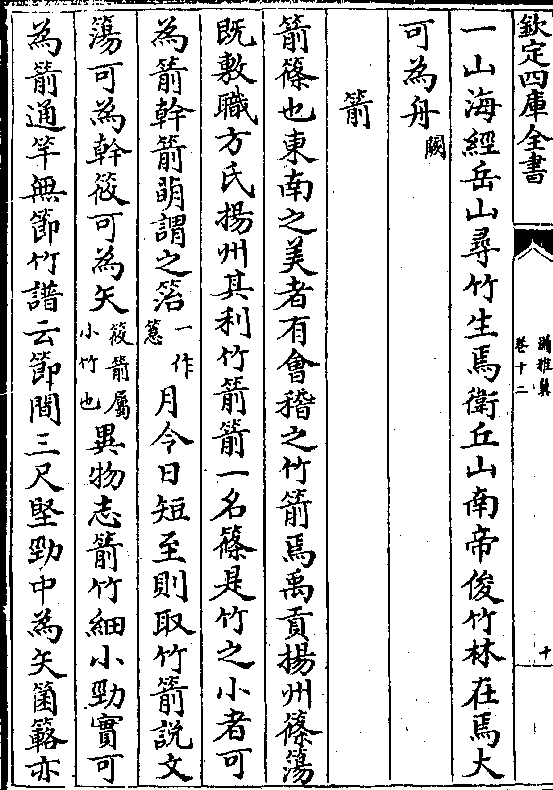 欽定四庫全書
爾雅翼
卷十二
十
一山海經岳山尋竹生焉衛丘山南帝俊竹林在焉大
可為舟闕
箭
箭篠也東南之美者有會稽之竹箭焉禹貢揚州篠簜
既敷職方氏揚州其利竹箭箭一名篠是竹之小者可
為箭幹箭萌謂之簜一作簜月令日短至則取竹箭說文
簜可為幹筱可為矢筱箭屬小竹也異物志箭竹細小勁實可
為箭通竿無節竹譜云節間三尺堅勁中為矢箘簵亦